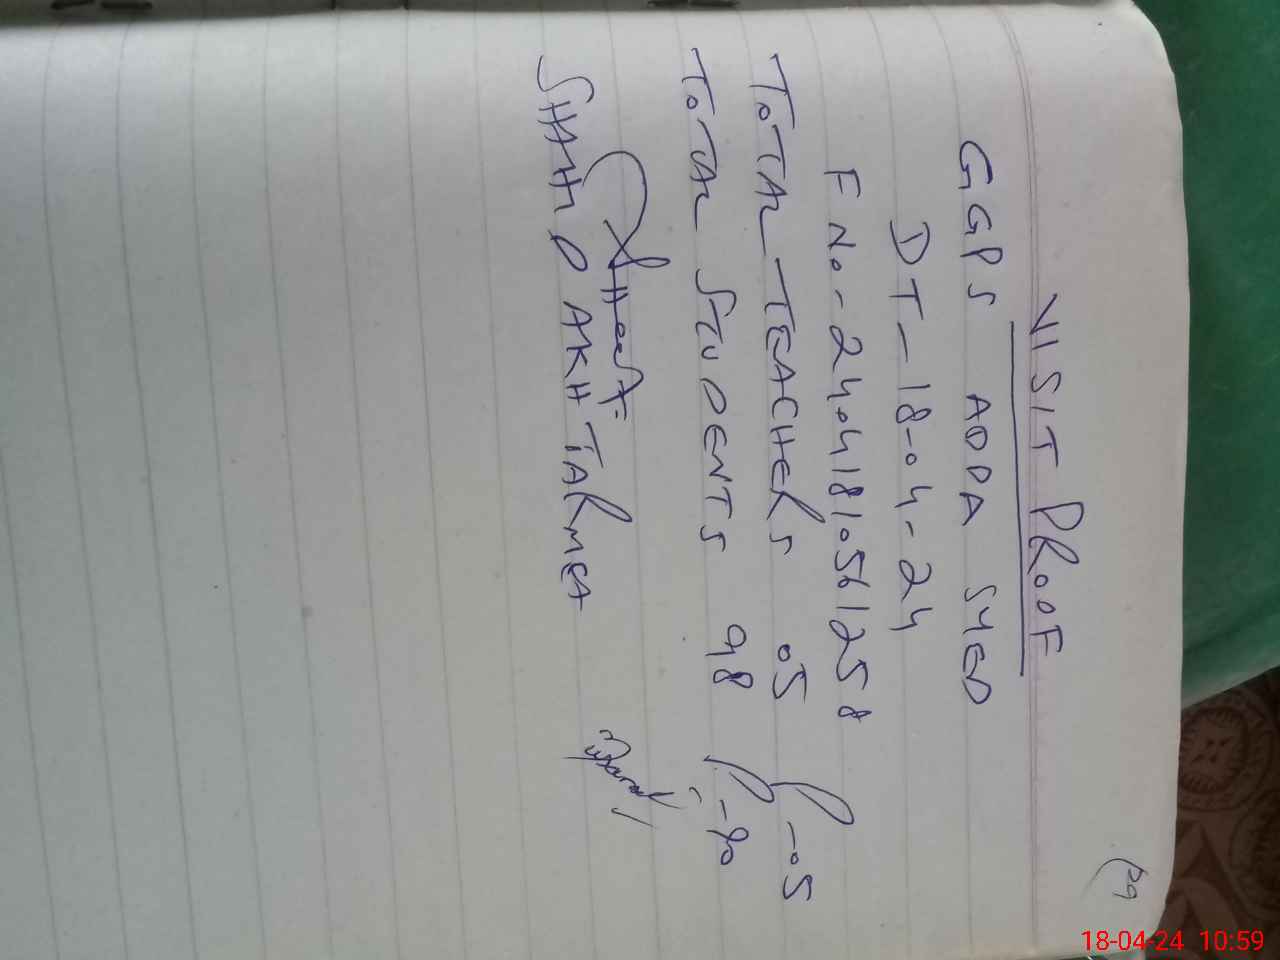 29
VISIT PROOF
GGPS ADDA SYED
DT-18-04-24
F No-24041810561258
TOTAL TEACHERS 05 P-05
TOTAL STUDENTS 98 P-90
SHAHID AKHTAR MEA
18-04-24 10:59